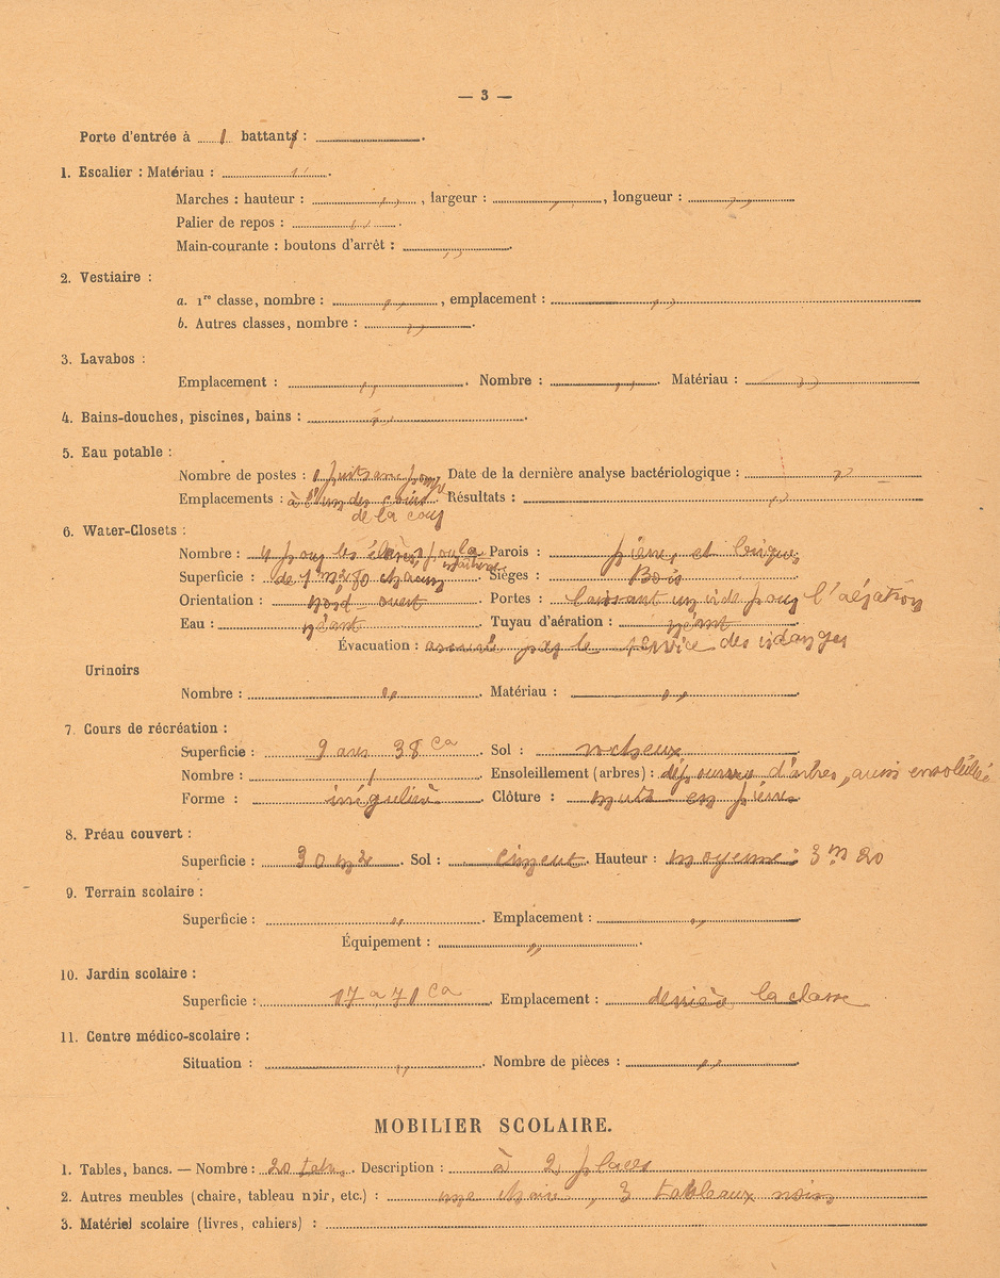 — 3 —
Porte d'entrée à 1 battant :
1. Escalier : Matériau : "
Marches : hauteur : " , largeur : " , longueur : "
Palier de repos : " .
Main-courante : boutons d'arrêt : " .
2. Vestiaire :
a. 1re classe, nombre : " , emplacement : "
b. Autres classes, nombre : " .
3. Lavabos :
Emplacement : " . Nombre : " . Matériau : "
4. Bains-douches, piscines, bains : " .
5. Eau potable :
Nombre de postes : 1 puits avec pompe Date de la dernière analyse bactériologique : "
Emplacements : à l'un des coins Résultats : "
de la cour
6. Water-Closets :
Nombre : 4 pour les élèves, 1 pour la Parois : pierre, et brique
maîtresse
Superficie : de 1m280 chacun . Sièges : Bois
Orientation : nord-ouest . Portes : laissant un vide pour l'aération
Eau : néant . Tuyau d'aération : néant
Évacuation : assuré par le service des vidanges
Urinoirs
Nombre : " . Matériau : " .
7. Cours de récréation :
Superficie : 9 ares 38 ca . Sol : rocheux
Nombre : 1 . Ensoleillement (arbres) : dépourvue d'arbres, aussi ensoleillée
Forme : irrégulière . Clôture : murs en pierres
8. Préau couvert :
Superficie : 30 m2 . Sol : ciment . Hauteur : moyenne : 3m 20
9. Terrain scolaire :
Superficie : " . Emplacement : "
Équipement : " .
10. Jardin scolaire :
Superficie : 17 a 71 ca . Emplacement : derrière la classe
11. Centre médico-scolaire :
Situation : " . Nombre de pièces : " .
MOBILIER SCOLAIRE.
1. Tables, bancs. — Nombre : 20 tabl. . Description : à 2 places
2. Autres meubles (chaire, tableau noir, etc.) : une chaire, 3 tableaux noirs
3. Matériel scolaire (livres, cahiers) :